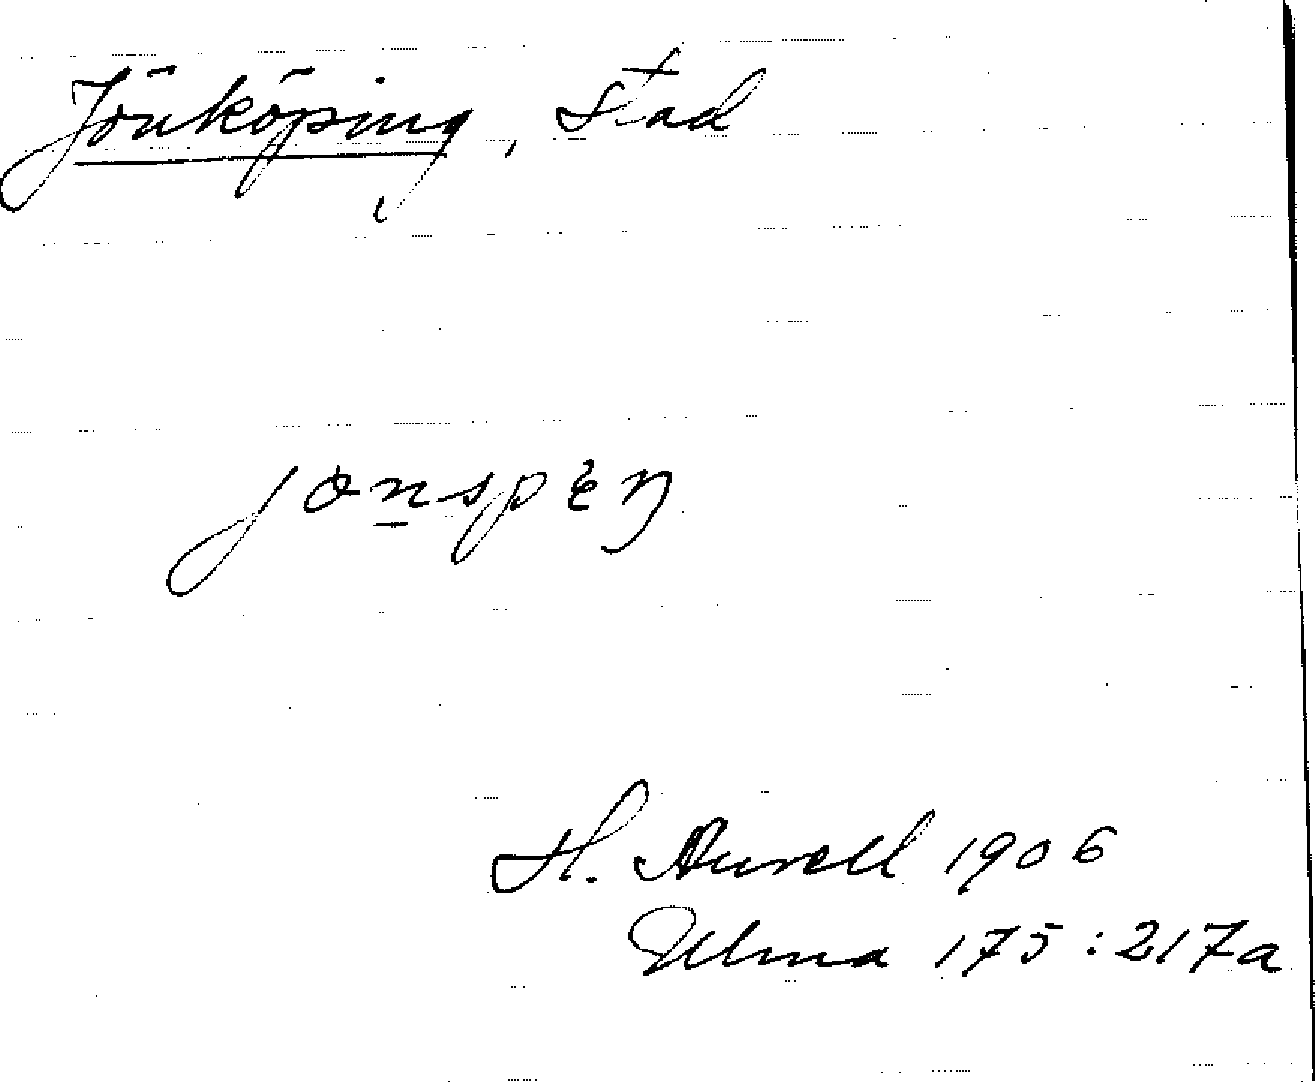 Jönköping, stad
H. Aurell 1906
Ulma 175:217a